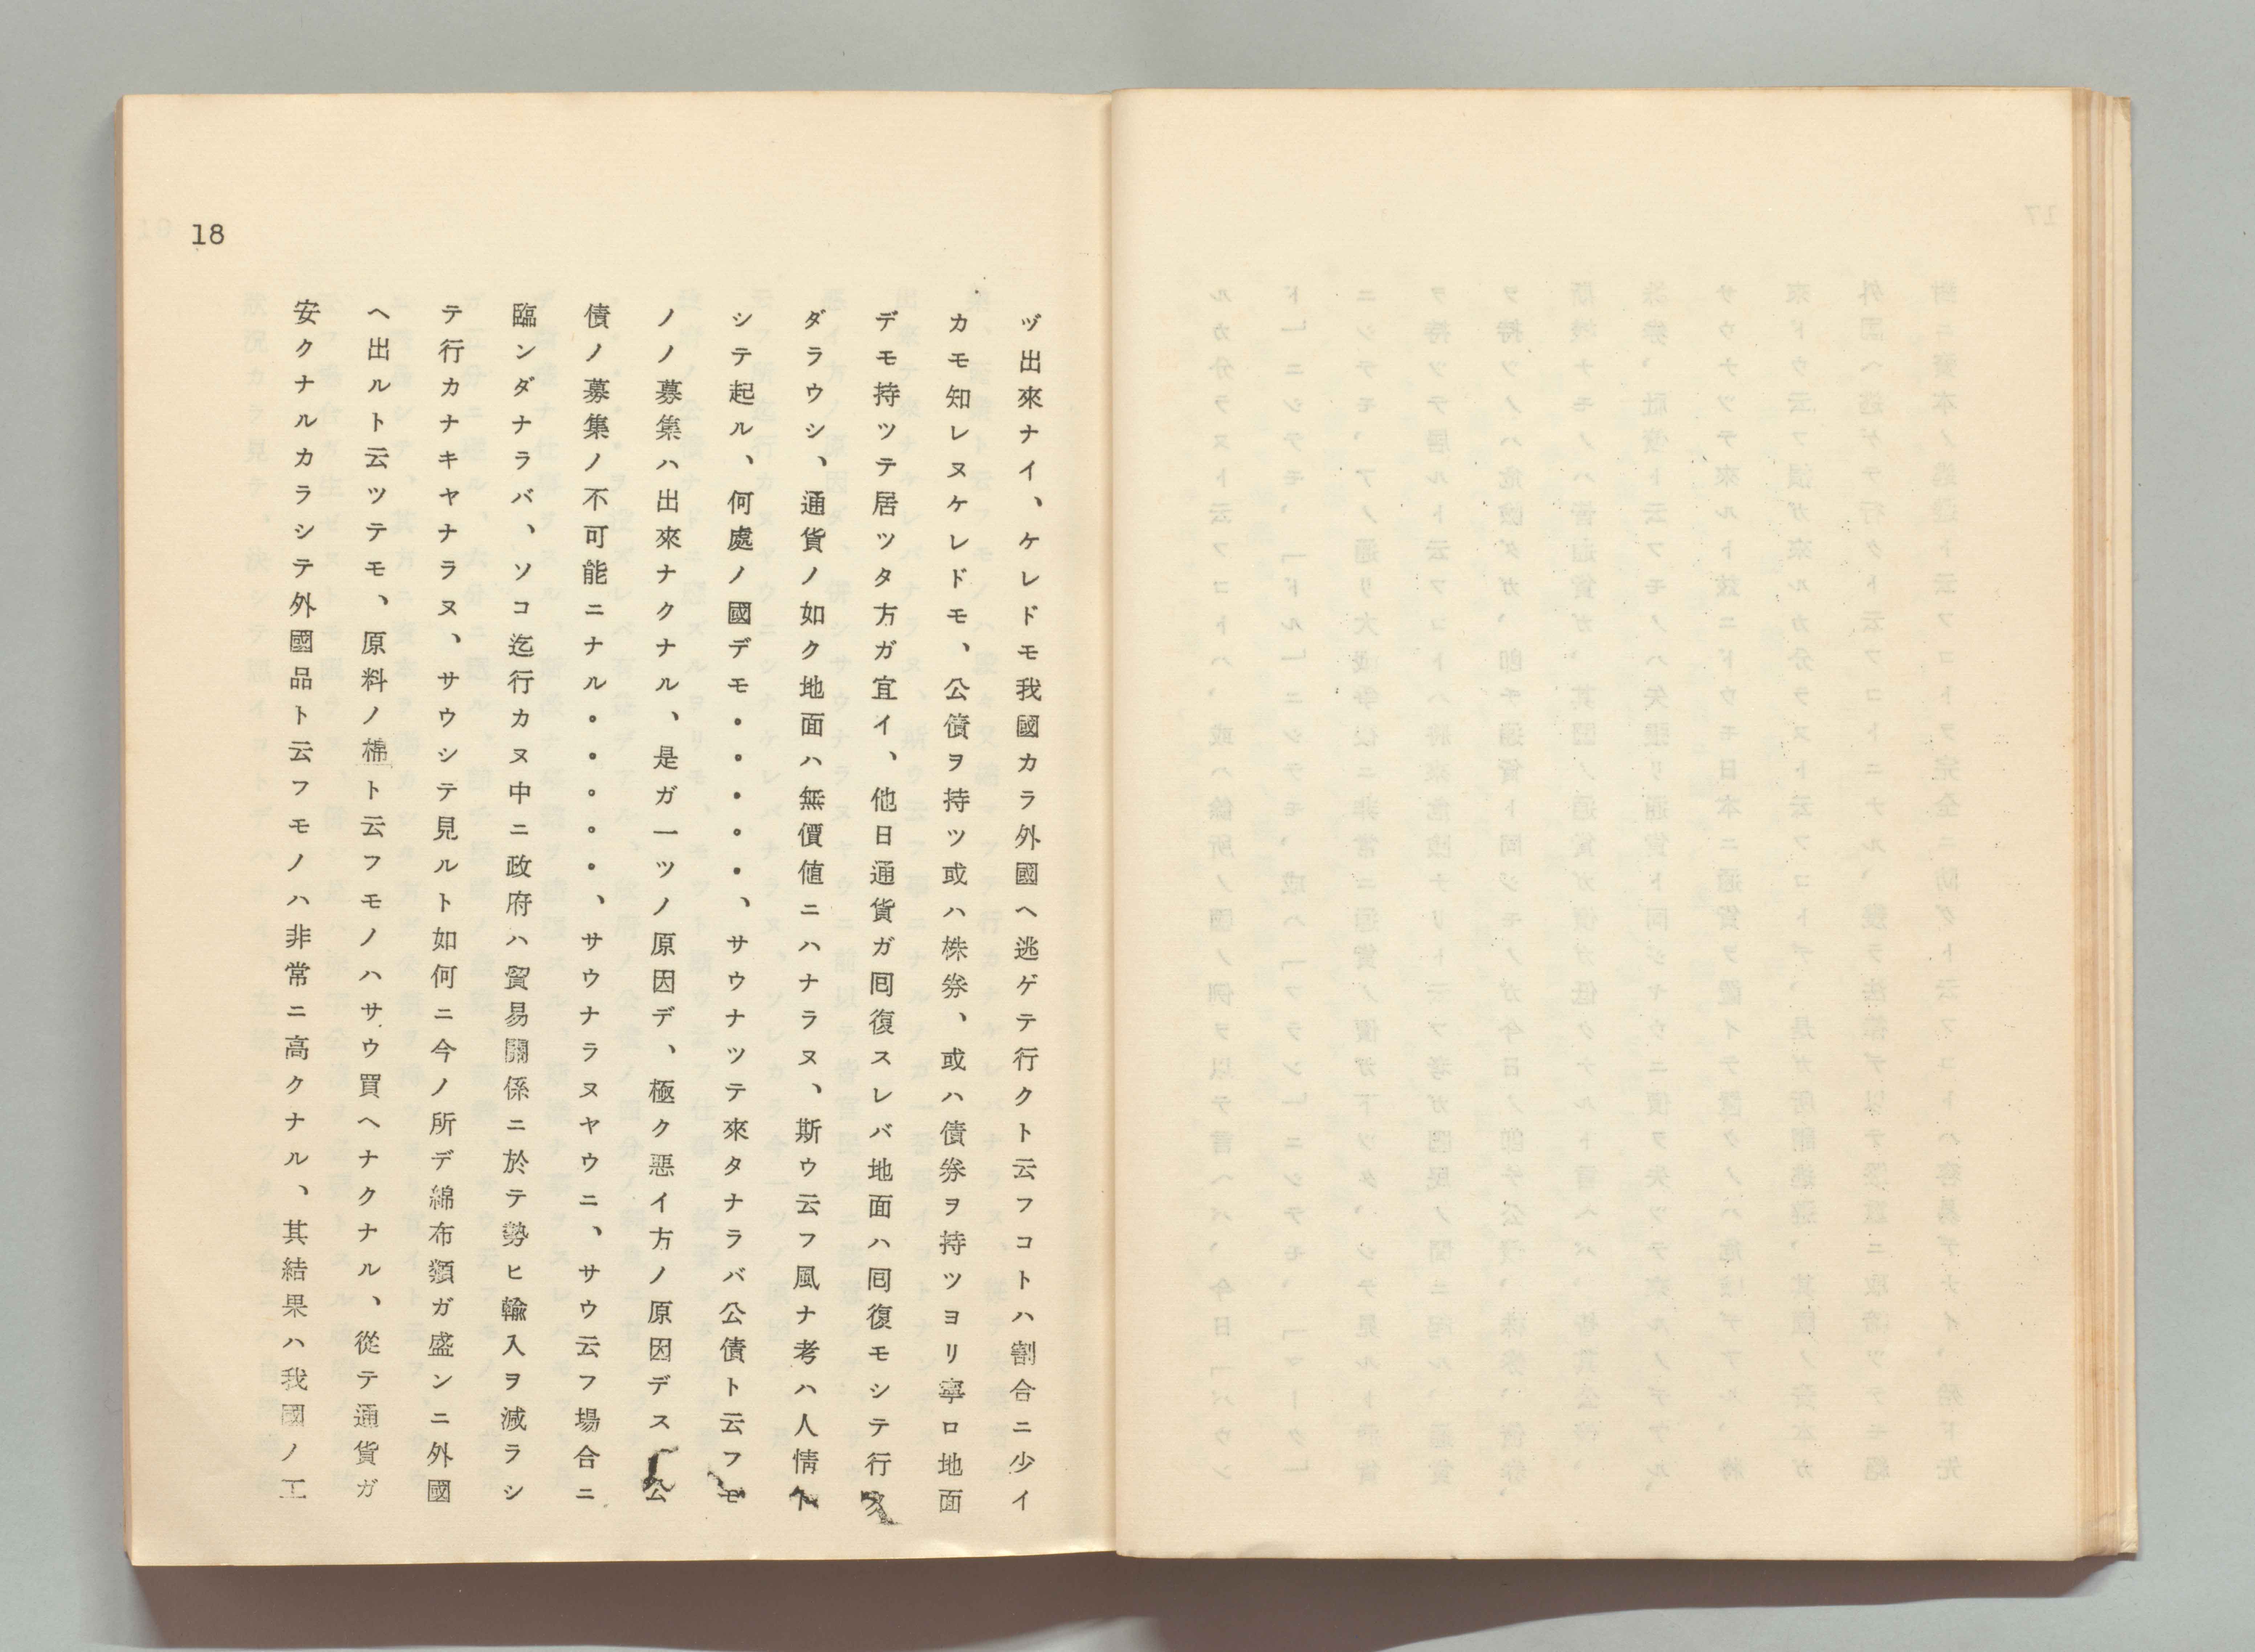 18
ヅ出來ナイ、ケレドモ我國カラ外國ヘ逃ゲテ行クト云フコトハ割合ニ少イ
カモ知レヌケレドモ、公債ヲ持ツ或ハ株券、或ハ債券ヲ持ツヨリ寧ロ地面
デモ持ツテ居ツタ方ガ宜イ、他日通貨ガ囘復スレバ地面ハ囘復モシテ行ク
ダラウシ、通貨ノ如ク地面ハ無價値ニハナラヌ、斯ウ云フ風ナ考ハ人情ト
シテ起ル、何處ノ國デモ・・・・・、サウナツテ來タナラバ公債ト云フモ
ノノ募集ハ出來ナクナル、是ガ一ツノ原因デ、極ク悪イ方ノ原因デス、公
債ノ募集ノ不可能ニナル・・・・・、サウナラヌヤウニ、サウ云フ場合ニ
臨ンダナラバ、ソコ迄行カヌ中ニ政府ハ貿易關係ニ於テ勢ヒ輸入ヲ減ラシ
テ行カナキヤナラヌ、サウシテ見ルト如何ニ今ノ所デ綿布類ガ盛ンニ外國
ヘ出ルト云ツテモ、原料ノ棉ト云フモノハサウ買ヘナクナル、從テ通貨ガ
安クナルカラシテ外國品ト云フモノハ非常ニ高クナル、其結果ハ我國ノ工